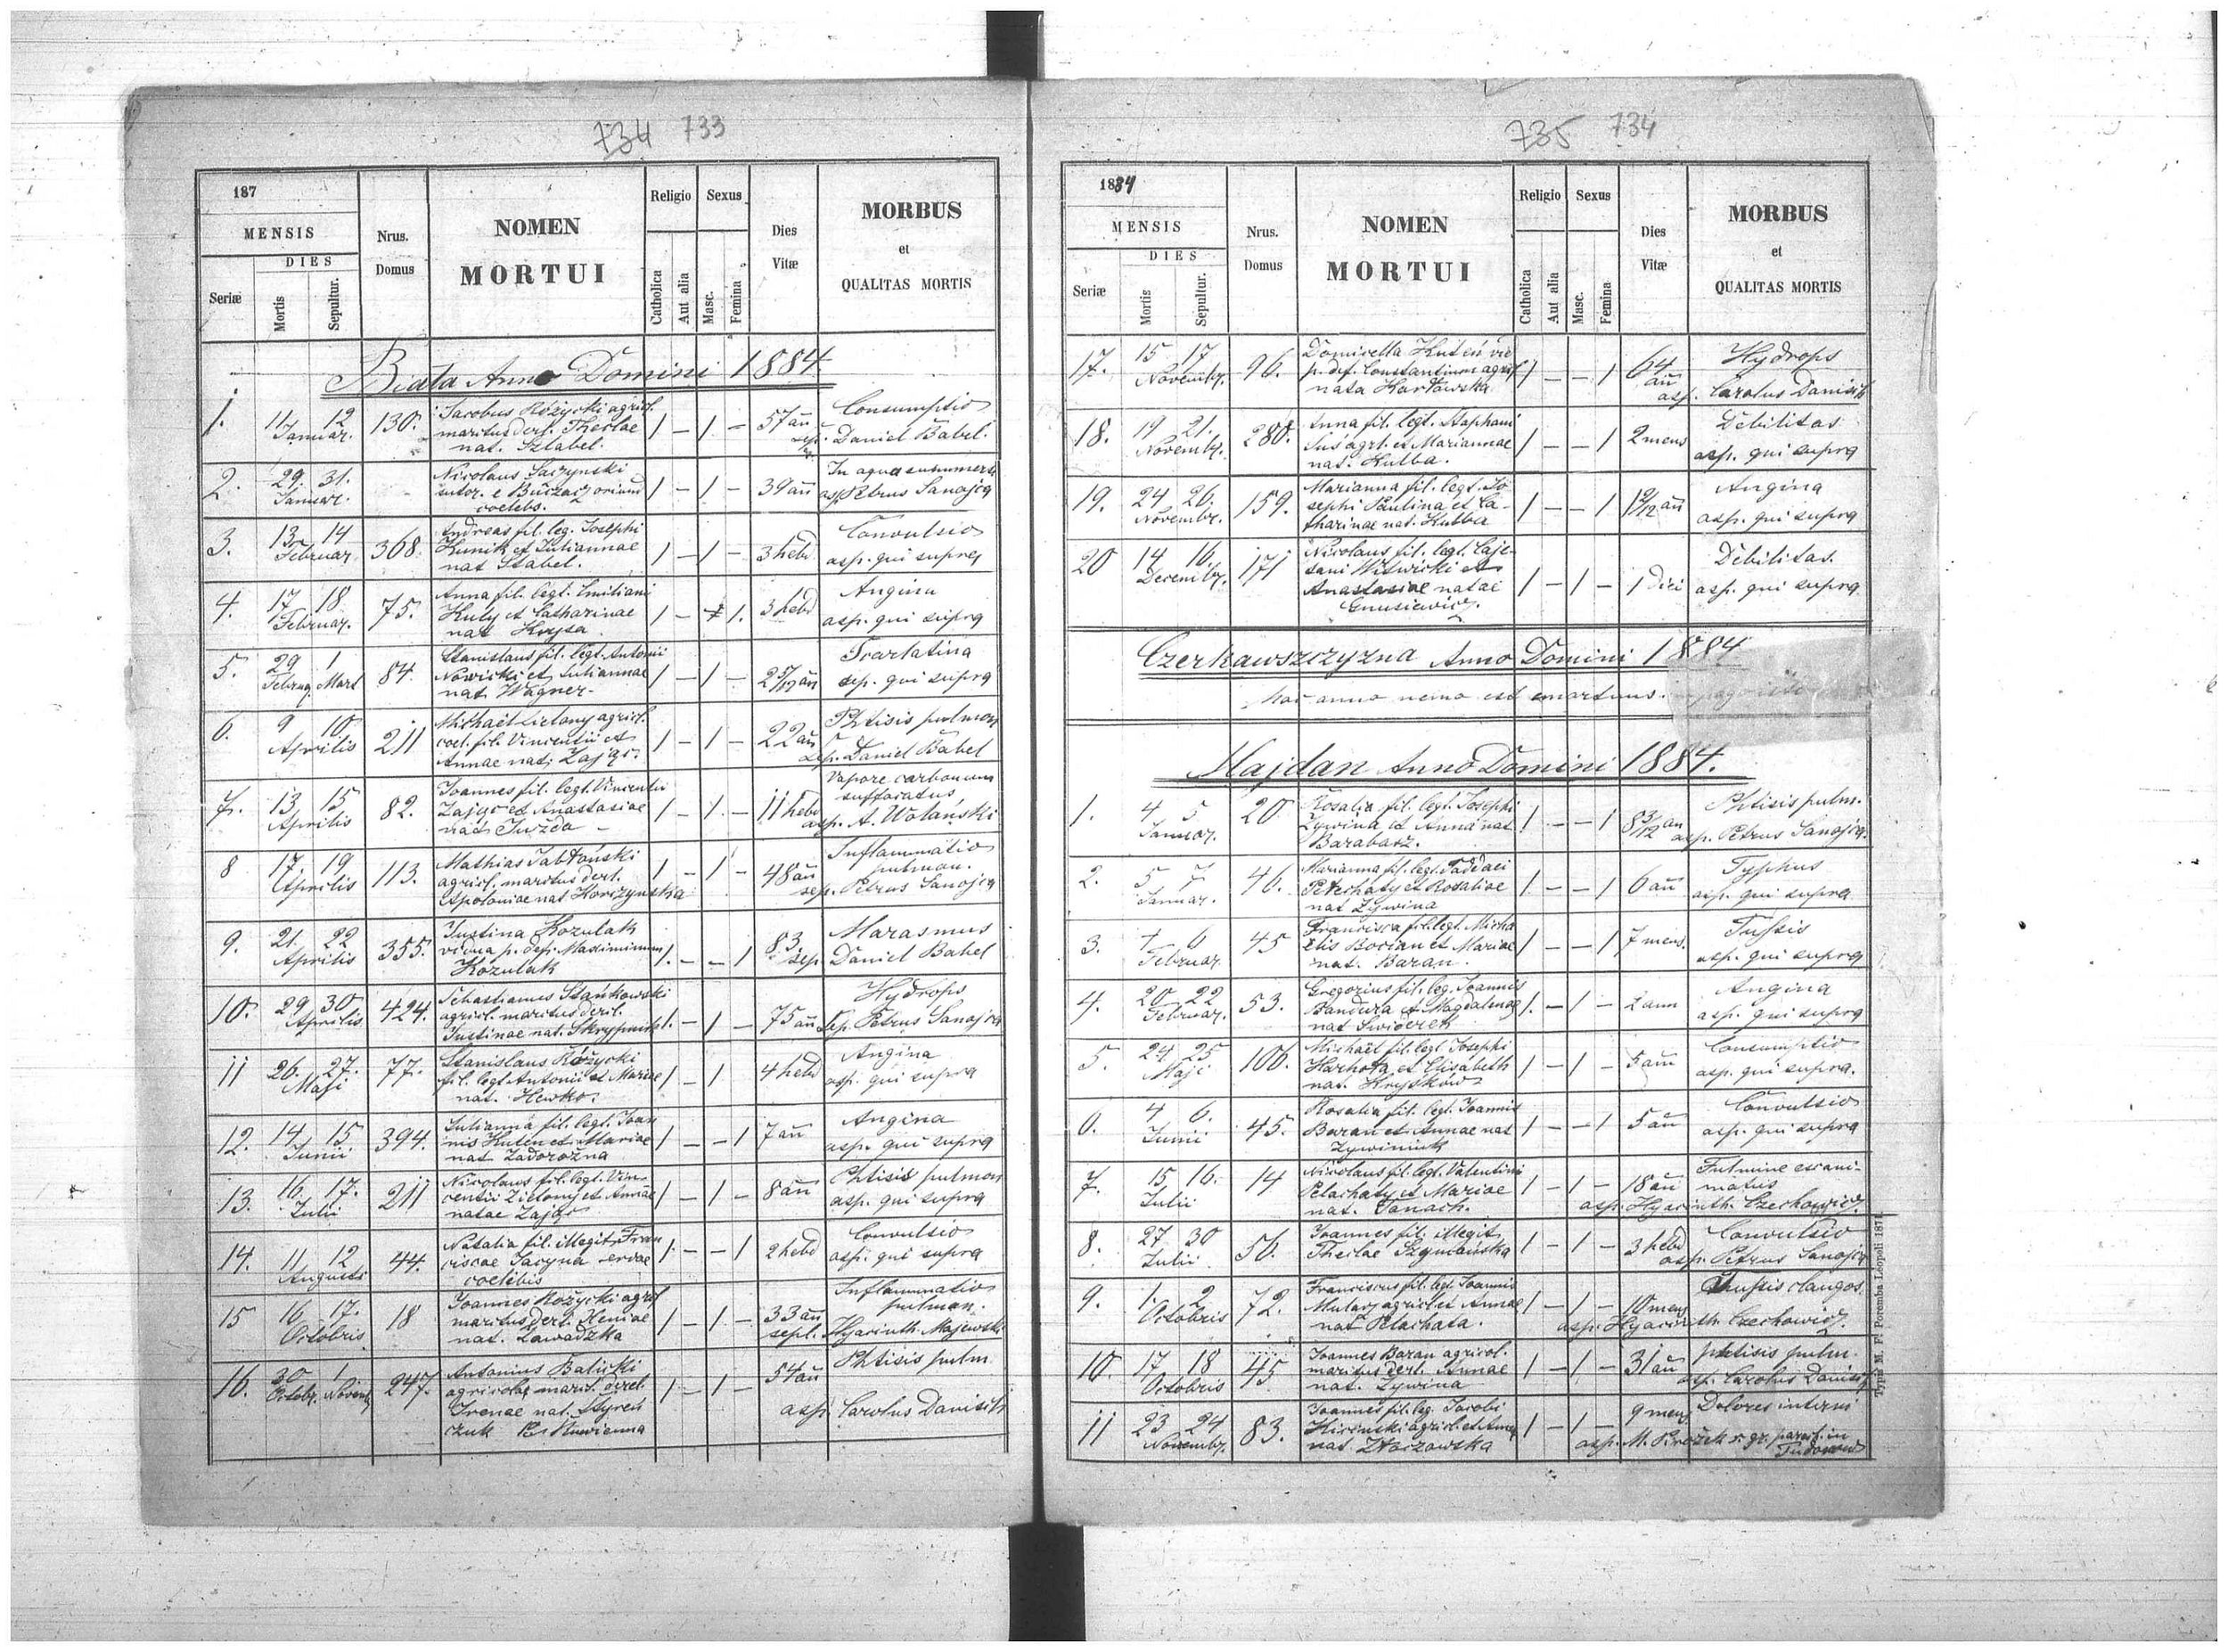 734 733
187
MENSIS
DIES
Seriæ
Mortis
Sepultur.
Nrus.
Domus
NOMEN
MORTUI
Religio
Sexus
Catholica
Aut alia
Masc.
Femina
Dies
Vitæ
MORBUS
et
QUALITAS MORTIS
Biała Anno Domini 1884
1. 11 12 Januar. 130. Jacobus Różycki agricol. Consumptio
maritus derl. Theclae 1 — 1 — 57 an̄
nat. Sztabel. sep. Daniel Babel.
2. 29. 31. Januar. Nicolaus In aqua
sutor. e Buczacz oriund 1 — 1 — 39 an̄
coelebs. asp. Petrus Sanojca
3. 13 14 Februar. 368. Andreas fil. leg. Josephi Convulsio
Kunik et Juliannae 1 — 1 — 3 hebd
nat Stabel. asp. qui supra
4. 17 18 Februar. 75. Anna fil. legt. Emiliani Angina
Kuty et Catharinae 1 — 1. 3 hebd
nat asp. qui supra
5. 29 1 Februar. Mart 84. Stanislaus fil. legt. Antonii Scarlatina
Nowicki et Juliannae 1 — 1 — 2 5/12 an̄
nat. Wagner sep. qui supra
6. 9 10 Aprilis 211 Michael Zielony agricol. Phtisis pulmon
coel. fil. Vincentii et 1 — 1 — 22 an̄
Annae nat. Zając. sep. Daniel Babel
7. 13 15 Aprilis 82. Joannes fil. legt. Vincentii Vapore carbonum
Zając et Anastasiae 1 — 1 — 11 hebd suffocatus
nat. Juzda asp. A. Wolański
8 17 19 Aprilis 113. Mathias Jabłoński Inflammatio
agricol. maritus derl. 1 — 1 — 48 an̄ pulmon.
Apoloniae nat Korczynska sep. Petrus Sanojca
9. 21. 22 Aprilis 355. Justina Kozulak Marasmus
vidua p. def. Maximinum 1. — — 1 83.
Kozulak sep. Daniel Babel
10. 29 30 Aprilis 424. Sebastianus Stańkowski Hydrops
agricol. maritus derl. 1. — 1 — 75 an̄
Justinae nat. sep. Petrus Sanojca
11 26. 27. Maji 77. Stanislaus Różycki Angina
fil. legt. Antonii et Mariae 1 — 1 4 hebd
nat. Hewko. asp. qui supra
12. 14 15 Junii 394. Julianna fil. legt. Joan Angina
nis Kuten et Mariae 1 — — 1 7 an̄
nat Zadorożna asp. qui supra
13. 16. 17. Julii 211 Nicolaus fil. legt. Vin- Phtisis pulmon
centii Zielony et Annae 1 — 1 — 8 an̄
natae Zając asp. qui supra
14. 11 12 Augusti 44. Natalia fil. illegit. Fran Convulsio
ciscae Saryna 1. — — 1 2 hebd
coelibis asp. qui supra
15 16 17. Octobris 18 Joannes Rożycki agricol Inflammatio
maritus derl. Xeniae 1 — 1 — 33 an̄ pulmon.
nat. Zawadzka sepl. Hyacinth. Majewski
16. 30 1 Octobr. Novemb 247. Antonius Balicki 54 an̄ Phtisis pulm
agricola marit. derel. 1 — 1 —
Irenae nat. Styren
czuk asp. Carolus Danisch
735 734
1884
MENSIS
DIES
Seriæ
Mortis
Sepultur.
Nrus.
Domus
NOMEN
MORTUI
Religio
Sexus
Catholica
Aut alia
Masc.
Femina
Dies
Vitæ
MORBUS
et
QUALITAS MORTIS
17. 15 17 Novembr. 96. Domicella Kuteń vid Hydrops
p. def. Constantinum agricol 1 — — 1 64 an̄
nata Karłowska asp. Carolus Danisch
18. 19 21. Novembr. 280. Anna fil. legt. Stephani Debilitas
Sus agrl. et Mariannae 1 — — 1 2 mens
nat. Kulba. asp. qui supra
19. 24 26. Novembr. 159. Marianna fil. legt. Jo Angina
sephi Paulina et Ca- 1 — — 1
tharinae nat. Kulba asp. qui supra
20 14 16. Decembr. 171 Nicolaus fil. legt. Caje- Debilitas.
tani Witwicki et 1 — 1 — 1 diei
Anastasiae natae asp. qui supra
Gnusiewicz.
Czerkawszczyzna Anno Domini 1884
hoc anno nemo est emortuus.
Majdan Anno Domini 1884.
1. 4 5 Januar. 20 Rosalia fil. legt. Josephi Phtisis pulm.
Zywina et Anna nat. 1 — — 1 8 3/12 an
Barabasz. asp. Petrus Sanojca.
2. 5 7 Januar. 46. Marianna fil. legt. Taddaei Typhus
et Rosaliae 1 — — 1 6 an̄
nat Zywina asp. qui supra
3. 4 6 Februar 45 Francisca fil. legt. Micha Tussis
elis Bocian et Mariae 1 — — 1 7 mens.
nat. Baran. asp. qui supra
4. 20 22 Februar. 53. Gregorius fil. leg. Joannis Angina
Bandura et Magdalenae 1. — 1 — 2 ann
nat Swiderek asp. qui supra
5. 24 25 Maji 106. Michaël fil. legt Josephi Consumptio
Harhota et Elisabeth 1 — 1 — 5 an̄
nat. Kryskow asp. qui supra.
6. 4 6. Junii 45. Rosalia fil. legt. Joannis Convulsio
Baran et Annae nat 1 — — 1 5 an̄
Zywiniuk asp. qui supra
7. 15 16. Julii 14 Nicolaus fil. legt. Valentini Fulmine exani-
Pelachaty et Mariae 1 — 1 — 18 an̄ matus
nat. Banach. asp. Hyacinth. Czechowicz.
8. 27 30 Julii 56. Joannes fil. illegit. Convulsio
Theclae Szymańska 1 — 1 — 3 hebd
asp. Petrus Sanojca
9. 1. 2 Octobris 72. Franciscus fil. legt Joannis Tussis clangos.
Mularz agricol. et Annae 1 — 1 — 10 mens
nat Pelachata. asp. Hyacinth. Czechowicz.
10. 17 18 Octobris 45 Joannes Baran agricol. phtisis pulm.
maritus derl. Annae 1 — 1 — 31 an̄
nat. Zywina asp. Carolus Danisch
11 23 24 Novembr. 83. Joannes fil. leg. Jacobi 9 mens Dolores interni
agricol. et Annae 1 — 1 —
nat Złoczowska asp. M. r. gr. paroch. in
Typis M. F. Poremba Leopoli 1871.